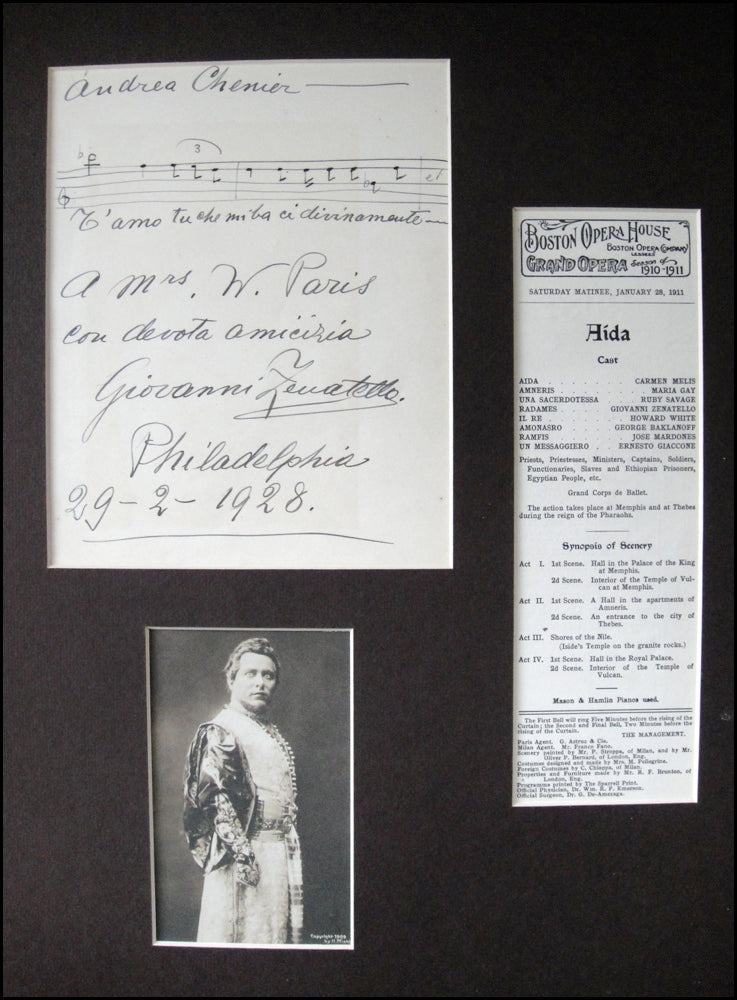 Andrea Chenier
3
T'amo tu che mi baci divinamente
A Mrs. W. Paris
con devota amicizia
Giovanni Zenatello.
Philadelphia
29-2-1928.
BOSTON OPERA HOUSE
BOSTON OPERA COMPANY
LESSEES
GRAND OPERA Season of 1910-1911
SATURDAY MATINEE, JANUARY 28, 1911
Aida
Cast
AIDA . . . . . . . . CARMEN MELIS
AMNERIS . . . . . . . . MARIA GAY
UNA SACERDOTESSA . . . . RUBY SAVAGE
RADAMES . . . . GIOVANNI ZENATELLO
IL RE . . . . . . . HOWARD WHITE
AMONASRO . . . . GEORGE BAKLANOFF
RAMFIS . . . . . . JOSE MARDONES
UN MESSAGGIERO . . ERNESTO GIACCONE
Priests, Priestesses, Ministers, Captains, Soldiers,
Functionaries, Slaves and Ethiopian Prisoners,
Egyptian People, etc.
Grand Corps de Ballet.
The action takes place at Memphis and at Thebes
during the reign of the Pharaohs.
Synopsis of Scenery
Act I. 1st Scene. Hall in the Palace of the King
at Memphis.
2d Scene. Interior of the Temple of Vul-
can at Memphis.
Act II. 1st Scene. A Hall in the apartments of
Amneris.
2d Scene. An entrance to the city of
Thebes.
Act III. Shores of the Nile.
(Iside's Temple on the granite rocks.)
Act IV. 1st Scene. Hall in the Royal Palace.
2d Scene. Interior of the Temple of
Vulcan.
Mason & Hamlin Pianos used.
The First Bell will ring Five Minutes before the rising of the
Curtain; the Second and Final Bell, Two Minutes before the
rising of the Curtain.
THE MANAGEMENT.
Paris Agent, G. Astruc & Cie.
Milan Agent, Mr. Franco Fano.
Scenery painted by Mr. P. Stroppa, of Milan, and by Mr.
Oliver P. Bernard, of London, Eng.
Costumes designed and made by Mrs. M. Pellegrine.
Foreign Costumes by C. Chiappa, of Milan.
Properties and Furniture made by Mr. R. F. Brunton, of
London, Eng.
Programme printed by The Sparrell Print.
Official Physician, Dr. Wm. R. P. Emerson.
Official Surgeon, Dr. G. De-Amezaga.
Copyright 1909
by